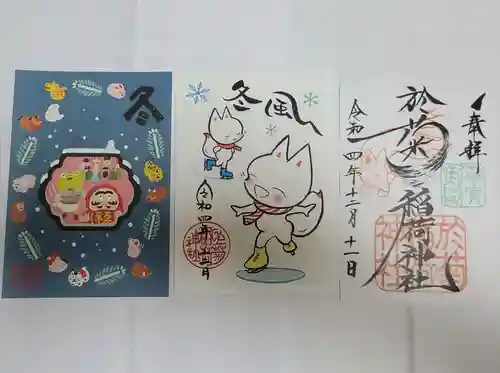 冬
冬風
令和四年十二月
奉拝
於菊稲荷神社
令和四年十二月十一日